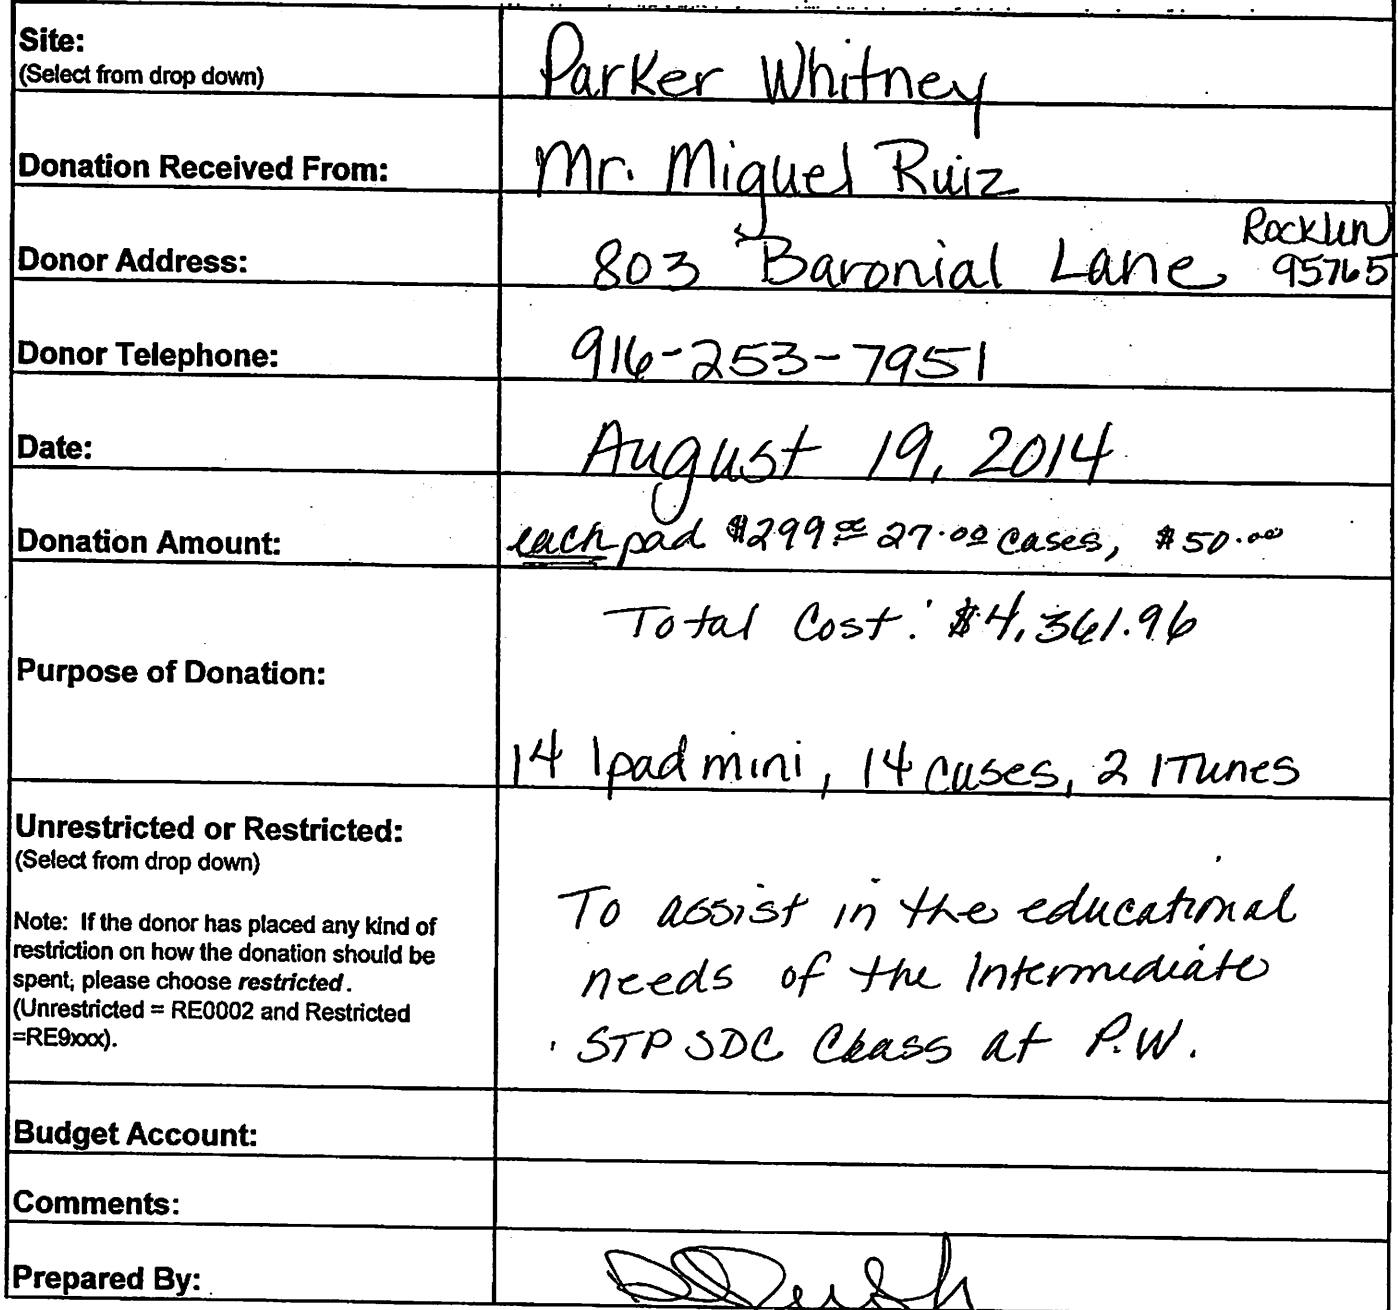 Site:
(Select from drop down)
Parker Whitney
Donation Received From:
Mr. Miguel Ruiz
Donor Address:
803 Baronial Lane Rocklin
95765
Donor Telephone:
916-253-7951
Date:
August 19, 2014
Donation Amount:
each pad $299.00 27.00 cases, $50.00
Total Cost: $4,361.96
Purpose of Donation:
14 Ipad mini, 14 cases, 2 ITunes
Unrestricted or Restricted:
(Select from drop down)
Note: If the donor has placed any kind of
restriction on how the donation should be
spent, please choose restricted.
(Unrestricted = RE0002 and Restricted
=RE9xxx).
To assist in the educational
needs of the Intermediate
STP SDC Class at P.W.
Budget Account:
Comments:
Prepared By: